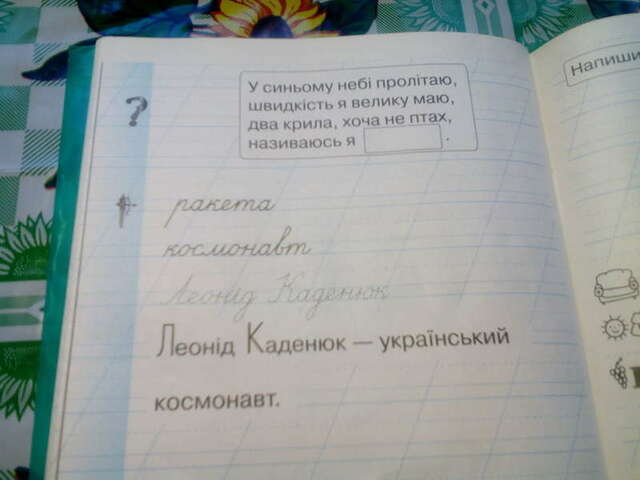 У синьому небі пролітаю,
швидкість я велику маю,
два крила, хоча не птах,
називаюсь я .
?
ракета
космонавт
Леонід Каденюк
Леонід Каденюк — український
космонавт.
Напиши